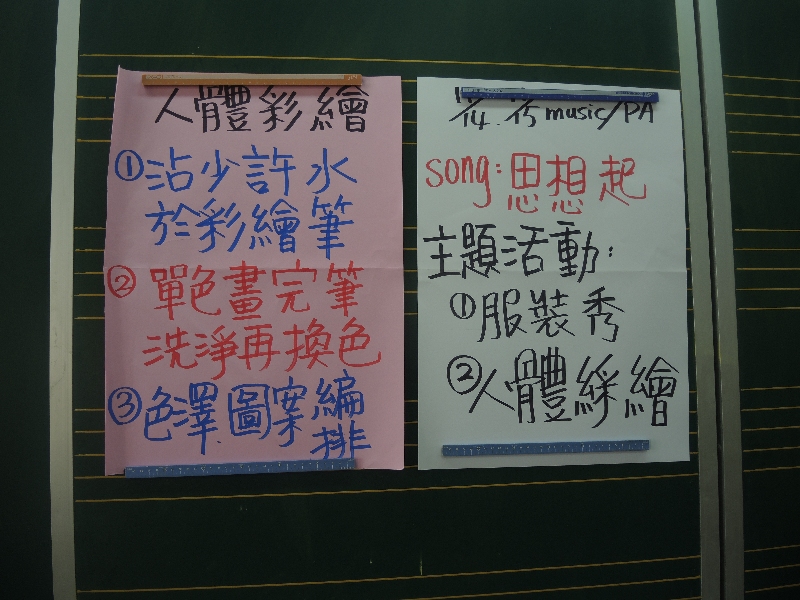 人體彩繪
①沾少許水
於彩繪筆
②單色畫完筆
洗淨再換色
③色澤.圖案編
排
1/14. 1/5 music/PA
song:思想起
主題活動:
①服裝秀
②人體綵繪